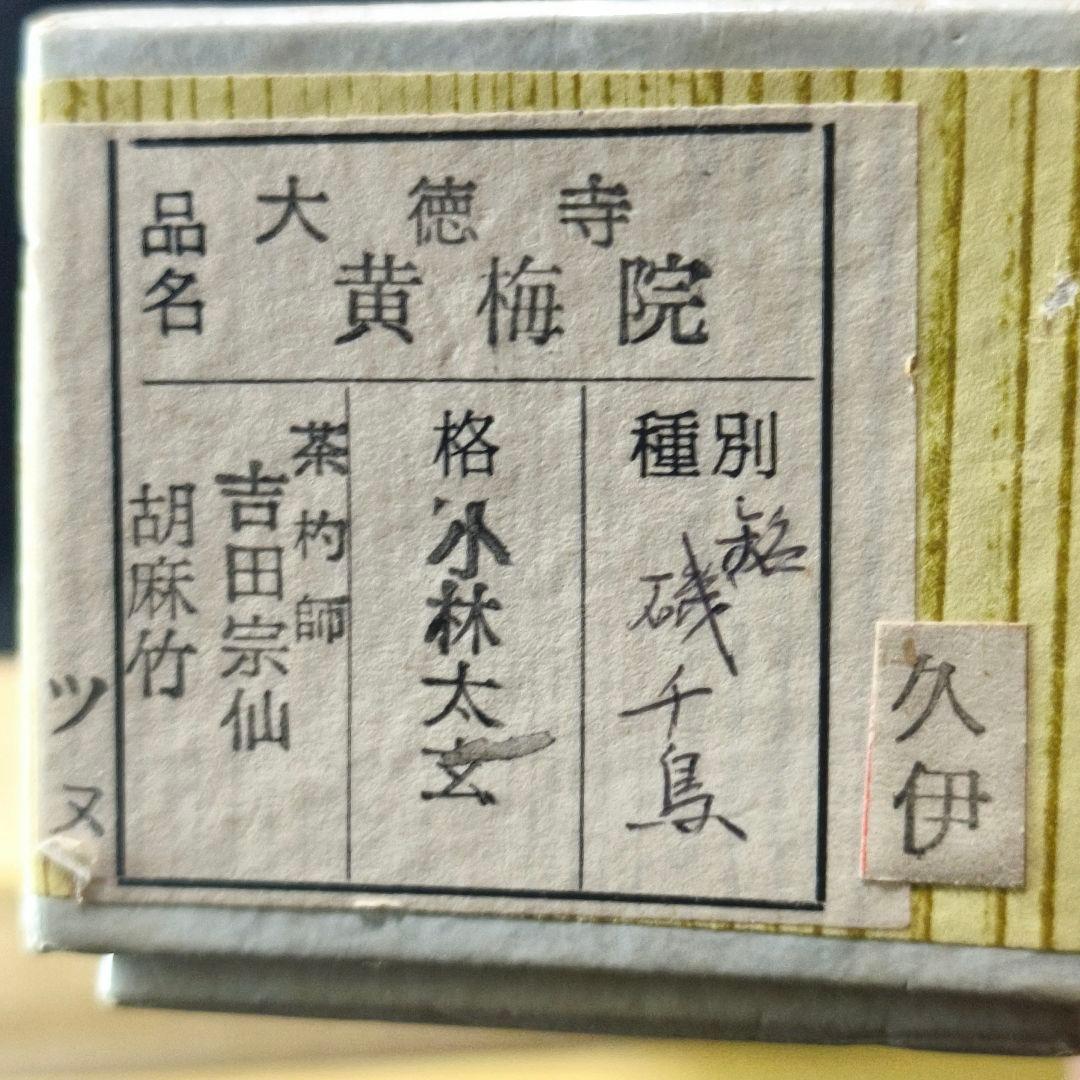 品名
大徳寺
黄梅院
種別
銘
磯千鳥
格
小林太玄
茶杓師
吉田宗仙
胡麻竹
ツヌ
久伊